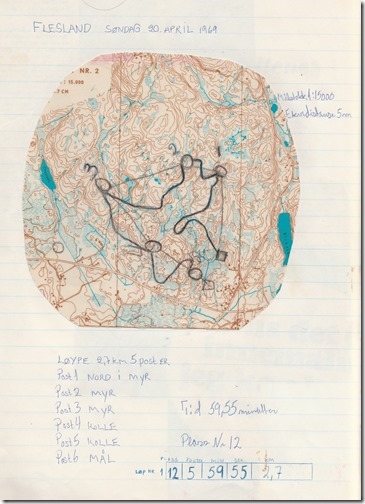 FLESLAND SØNDAG 20. APRIL 1969
NR. 2
: 15.000
.7 CH
Målestokk 1:15000
Ekvidistanse 5m
1
2
3
LØYPE 2,7 km 5 poster
Post 1 NORD i MYR
Post 2 MYR
Post 3 MYR
Tid 59,55 minutter
Post 4 KOLLE
Post 5 KOLLE
Plass Nr 12
Post 6 MÅL
LØP NR 1 12 5 59 55 2,7